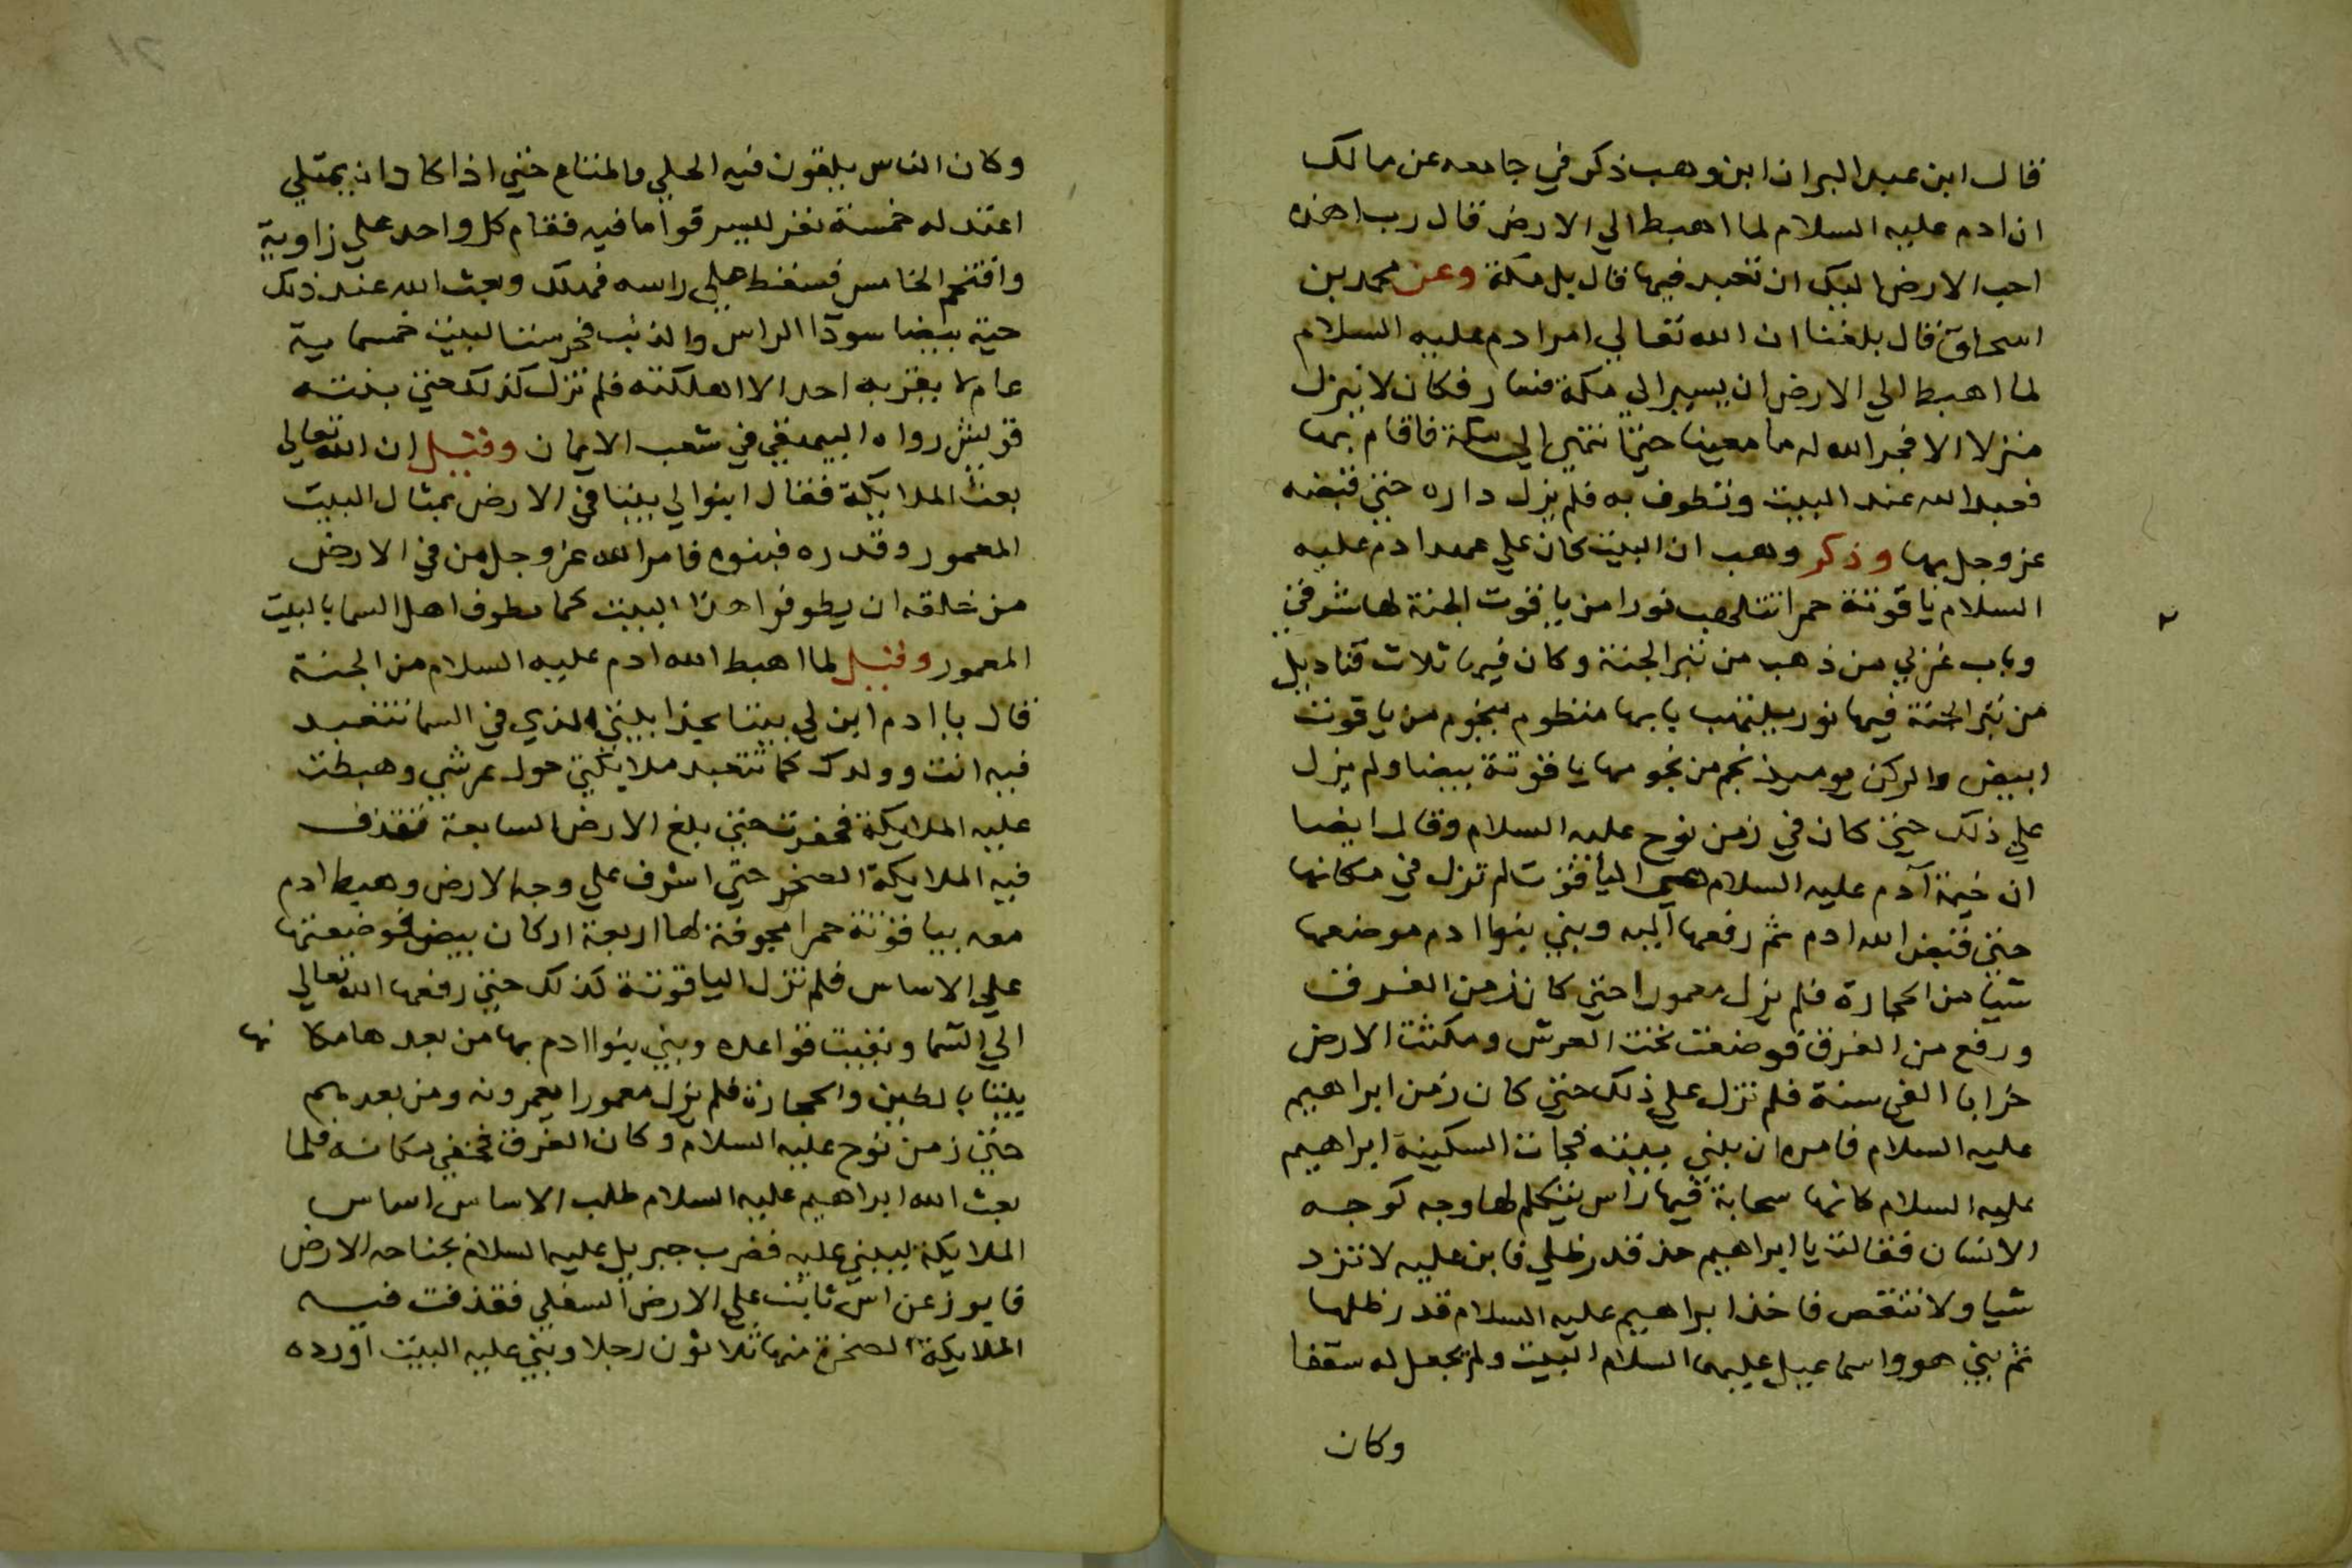 قال ابن عبد البر ان ابن وهب ذكر في جامعه عن مالك
ان ادم عليه السلام لما اهبط الي الارض قال رب اهذه
احب الارض اليك ان تعبد فيها قال بل مكة وعن محمد بن
اسحاق قال بلغنا ان الله تعالي امر ادم عليه السلام
لما اهبط الي الارض ان يسير الي مكة فسار فكان لا ينزل
منزلا الا فجر الله له ما معينا حتي انتهي الي مكة فاقام بها
فعبد الله عند البيت وتطوف به فلم يزل داره حتي قبضه
عز وجل بها وذكر وهب ان البيت كان علي عهد ادم عليه
السلام ياقوتة حمرا تتلهب نورا من ياقوت الجنة لها شرقي
وباب غربي من ذهب من تبر الجنة وكان فيها ثلاث قناديل
من تبر الجنة فيها نور يلتهب بابها منظوم بنجوم من ياقوت
ابيض والركن يوميذ نجم من نجومها ياقوتة بيضا ولم يزل
علي ذلك حتي كان في زمن نوح عليه السلام وقال ايضا
ان خيمة آدم عليه السلام هي الياقوت لم تزل في مكانها
حتي قبض الله ادم ثم رفعها اليه وبني بنوا ادم موضعها
شيا من الحجارة فلم يزل معمورا حتي كان زمن الغرق
ورفع من الغرق فوضعت تحت العرش ومكثت الارض
خرابا الفي سنة فلم تزل علي ذلك حتي كان زمن ابراهيم
عليه السلام فامره ان يبني بيته فجات السكينة ابراهيم
عليه السلام كانها سحابة فيها راس يتكلم لها وجه كوجه
الانسان فقالت يا ابراهيم خذ قدر ظلي فابن عليه لا تزد
شيا ولا تنقص فاخذ ابراهيم عليه السلام قدر ظلها
ثم بني هو واسماعيل عليهما السلام البيت ولم يجعل له سقفا
وكان
وكان الناس يلقون فيه الحلي والمتاع حتي اذا كاد ان يمتلي
اعتد له خمسة نفر ليسرقوا ما فيه فقام كل واحد علي زاوية
واقتحم الخامس فسقط علي راسه فهلك وبعث الله عند ذلك
حية بيضا سودا الراس والذنب فحرست البيت خمسماية
عام لا يقربه احد الا اهلكته فلم تزل كذلك حتي بنته
قريش رواه البيهقي في شعب الايمان وقيل ان الله تعالي
بعث الملايكة فقال ابنوا لي بيتا في الارض بمثال البيت
المعمور وقدره فبنوه فامر الله عز وجل من في الارض
من خلقه ان يطوفوا هذا البيت كما يطوف اهل السما بالبيت
المعمور وقيل لما اهبط الله ادم عليه السلام من الجنة
قال يا ادم ابن لي بيتا بحذا بيتي الذي في السما تتعبد
فيه انت وولدك كما تتعبد ملايكتي حول عرشي وهبطت
عليه الملايكة فحفرت حتي بلغ الارض السابعة فقذف
فيه الملايكة الصخر حتي اشرف علي وجه الارض وهبط ادم
معه بياقوتة حمرا مجوفة لها اربعة اركان بيض فوضعتها
علي الاساس فلم تزل الياقوتة كذلك حتي رفعها الله تعالي
الي السما وبقيت قواعده وبني بنوا ادم بها من بعدها مكانها
بيتا بالطين والحجارة فلم يزل معمورا يعمرونه ومن بعدهم
حتي زمن نوح عليه السلام وكان الغرق فخفي مكانه فلما
بعث الله ابراهيم عليه السلام طلب الاساس اساس
الملايكة ليبني عليه فضرب جبريل عليه السلام بجناحه الارض
فابرز عن اس ثابت علي الارض السفلي فقذفت فيه
الملايكة الصخرة منها ثلاثون رجلا وبني عليه البيت اورده